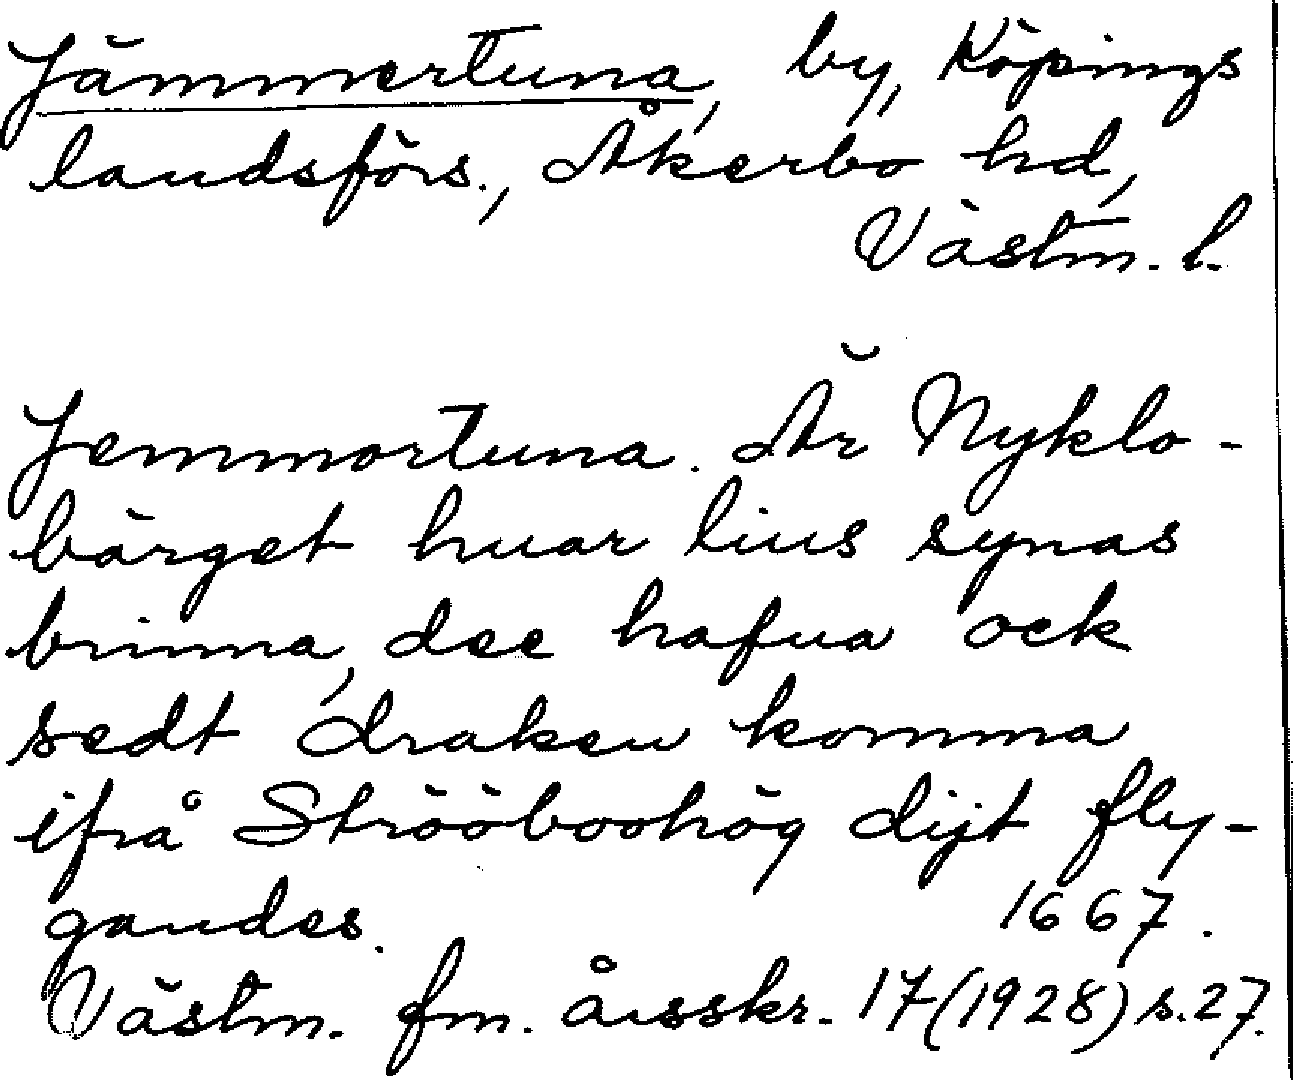 Jämmertuna, by, Köpings
landsförs., Åkerbo hd,
Västm. l.
Jemmortuna. Är Nyklo-
bärget huar lius synas
brinna, dee hafua ock
sedt draken komma
ifrå Strööboohög dijt fly-
gandes. 1667.
Västm. fm. årsskr. 17 (1928) s. 27.